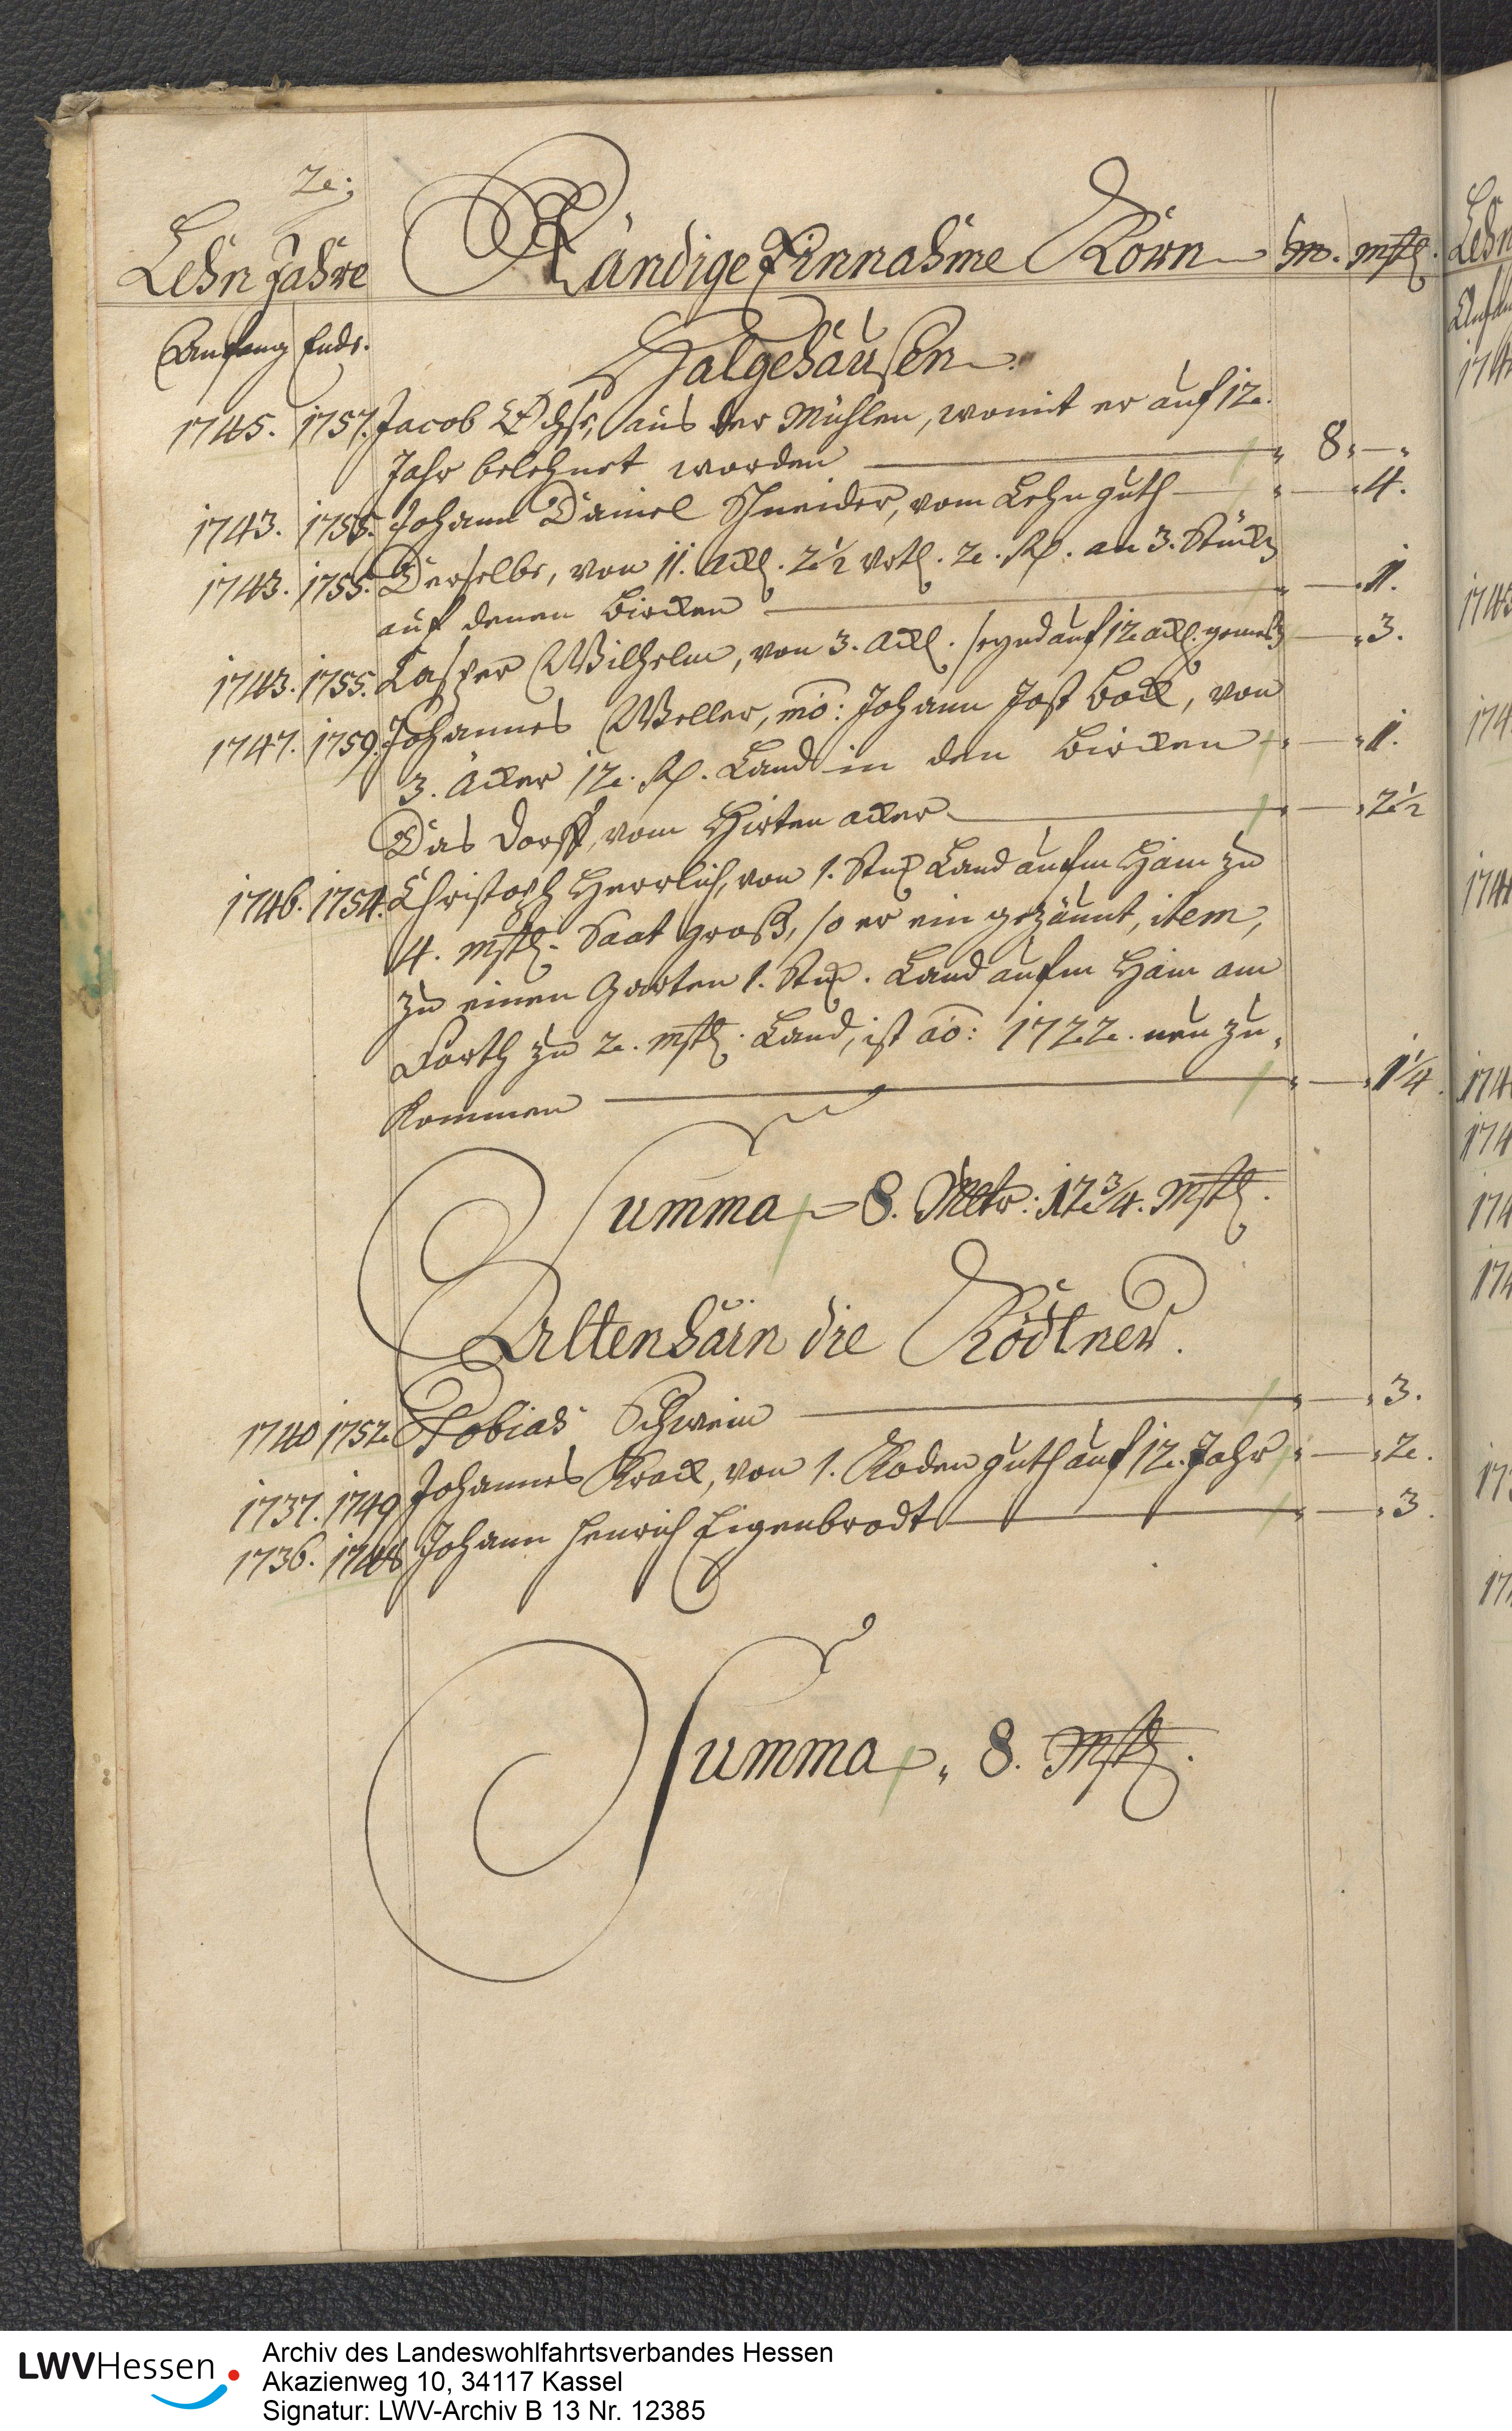 2.
Lehn Jahre Ständige Einnahme Korn m. mstl.
Anfang Ende. Halgehausen.
1745. 1757. Jacob aus der Mühlen, womit er auf 12.
Jahr belehnet worden 8.
1743. 1755. Johann Daniel Schneider, vom Lehnguth 4.
1743. 1755. Derselbe, von 11. Ackl. 2½ vrtl. 2. R. an 3. Stück
auf denen Bircken 1.
1743. 1755. Casper Wilhelm, von 3. Ackl. seynd auf 12 ackl. gemeß 3.
1747. 1759. Johannes Weller, mo: Johann Jost Bock, von
3. Äcker 12. R. Land in den Bircken 1.
Das Dorff, vom Hirten acker 2½
1746. 1754. Christoph Herrlich, von 1. Stück Land aufm Hain zu
4. mstl. Saat groß, so er ein gezäunt, item,
zu einen Garten 1. Stück. Land aufm Hain am
zu 2. mstl. Land, ist ao: 1722. neu zu
kommen 1¼
Summa 8. Mltr: 12¾. mstl.
Altenhain die Ködtner.
1740 1752 Tobias Schwein 3.
1737. 1749 Johannes Krack, von 1. Roden guth auf 12. Jahr 2.
1736. 1748 Johann Henrich Eigenbrodt 3.
Summa 8. mstl.
Lehn
LWVHessen
Archiv des Landeswohlfahrtsverbandes Hessen
Akazienweg 10, 34117 Kassel
Signatur: LWV-Archiv B 13 Nr. 12385